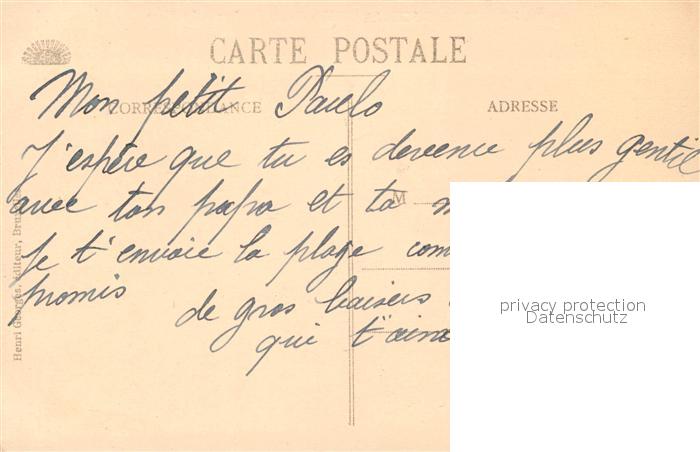 CARTE POSTALE
CORRESPONDANCE
ADRESSE
Mon petit Paulo
J'espère que tu es devenu plus gentil
avec ton papa et ta m
M
Je t'envoie la plage com
promis
de gros baisers
qui t'aim
Henri Georges, éditeur, Bru
privacy protection
Datenschutz